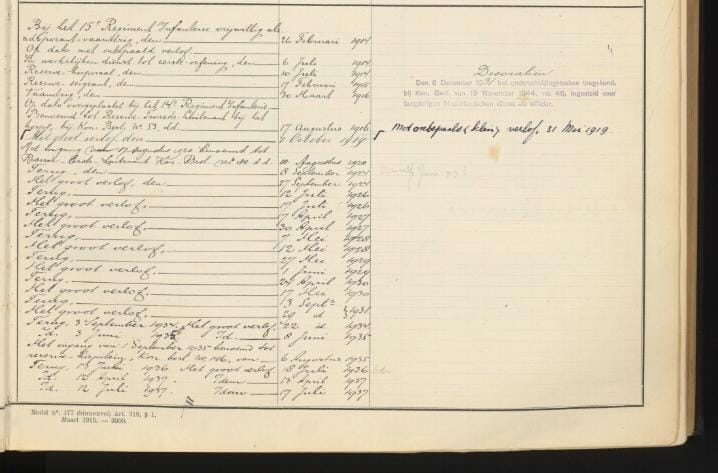 Bij het 15e Regiment Infanterie vrijwillig als
adspirant-vaandrig, den 26 Februari 1914
Op dato met onbepaald verlof
In werkelijken dienst tot eerste oefening, den 6 Juli 1914
Reserve-korporaal, den 10 Juli 1914
Reserve-sergeant, den 17 Februari 1915
Vaandrig, den 30 Maart 1916
Op dato overgeplaatst bij het 14e Regiment Infanterie.
Benoemd tot Reserve-Tweede-Luitenant bij het
korps, bij Kon. Besl. No. 53, dd. 17 Augustus 1916
Met groot verlof, den 3 October 1919
Met ingang van 17 Augustus 1920 benoemd tot
Reserve-Eerste-Luitenant Kon. Besl. No 80 d.d. 10 Augustus 1920
Terug, den 8 September 1924
Met groot verlof, den 27 September 1924
Terug, 12 Juli 1926
Met groot verlof, 17 Juli 1926
Terug, 17 April 1927
Met groot verlof, 30 April 1927
Terug, 7 Mei 1928
Met groot verlof, 12 Mei 1928
Terug, 27 Mei 1929
Met groot verlof, 1 Juni 1929
Terug, 24 April 1930
Met groot verlof, 17 Mei 1930
Terug, 13 Septr
Met groot verlof, 29 id 1931
Terug, 3 September 1934. Met groot verlof, 22 id 1934
Id. 3 Juni 1935 Id. 8 Juni 1935
Met ingang van 1 September 1935 benoemd tot
reserve-Kapitein, Kon. besl. No. 146, van 6 Augustus 1935
Terug, 13 Juli 1936 Met groot verlof 18 Juli 1936
Id. 12 April 1937. Idem 13 April 1937
Id. 12 Juli 1937. Idem 17 Juli 1937
Model no. 177 (binnenvel) Art. 319, § 1.
Maart 1915. — 3000.
Decoratiën
Den 6 December 19 het onderscheidingsteeken toegekend,
bij Kon. Besl. van 19 November 1844, no. 46, ingesteld voor
langdurigen Nederlandschen dienst als officier.
Met onbepaald (klein) verlof, 31 Mei 1919.